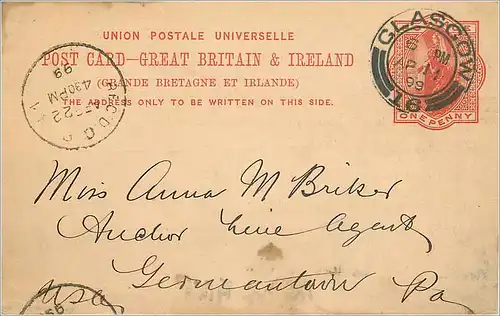 UNION POSTALE UNIVERSELLE
POST CARD-GREAT BRITAIN & IRELAND
(GRANDE BRETAGNE ET IRLANDE)
THE ADDRESS ONLY TO BE WRITTEN ON THIS SIDE.
GLASGOW
6 PM
AP 11
99
ONE PENNY
22
4:30PM
99
Miss Anna M Briker
Anchor Line Agent
Germantown Pa
USA
99